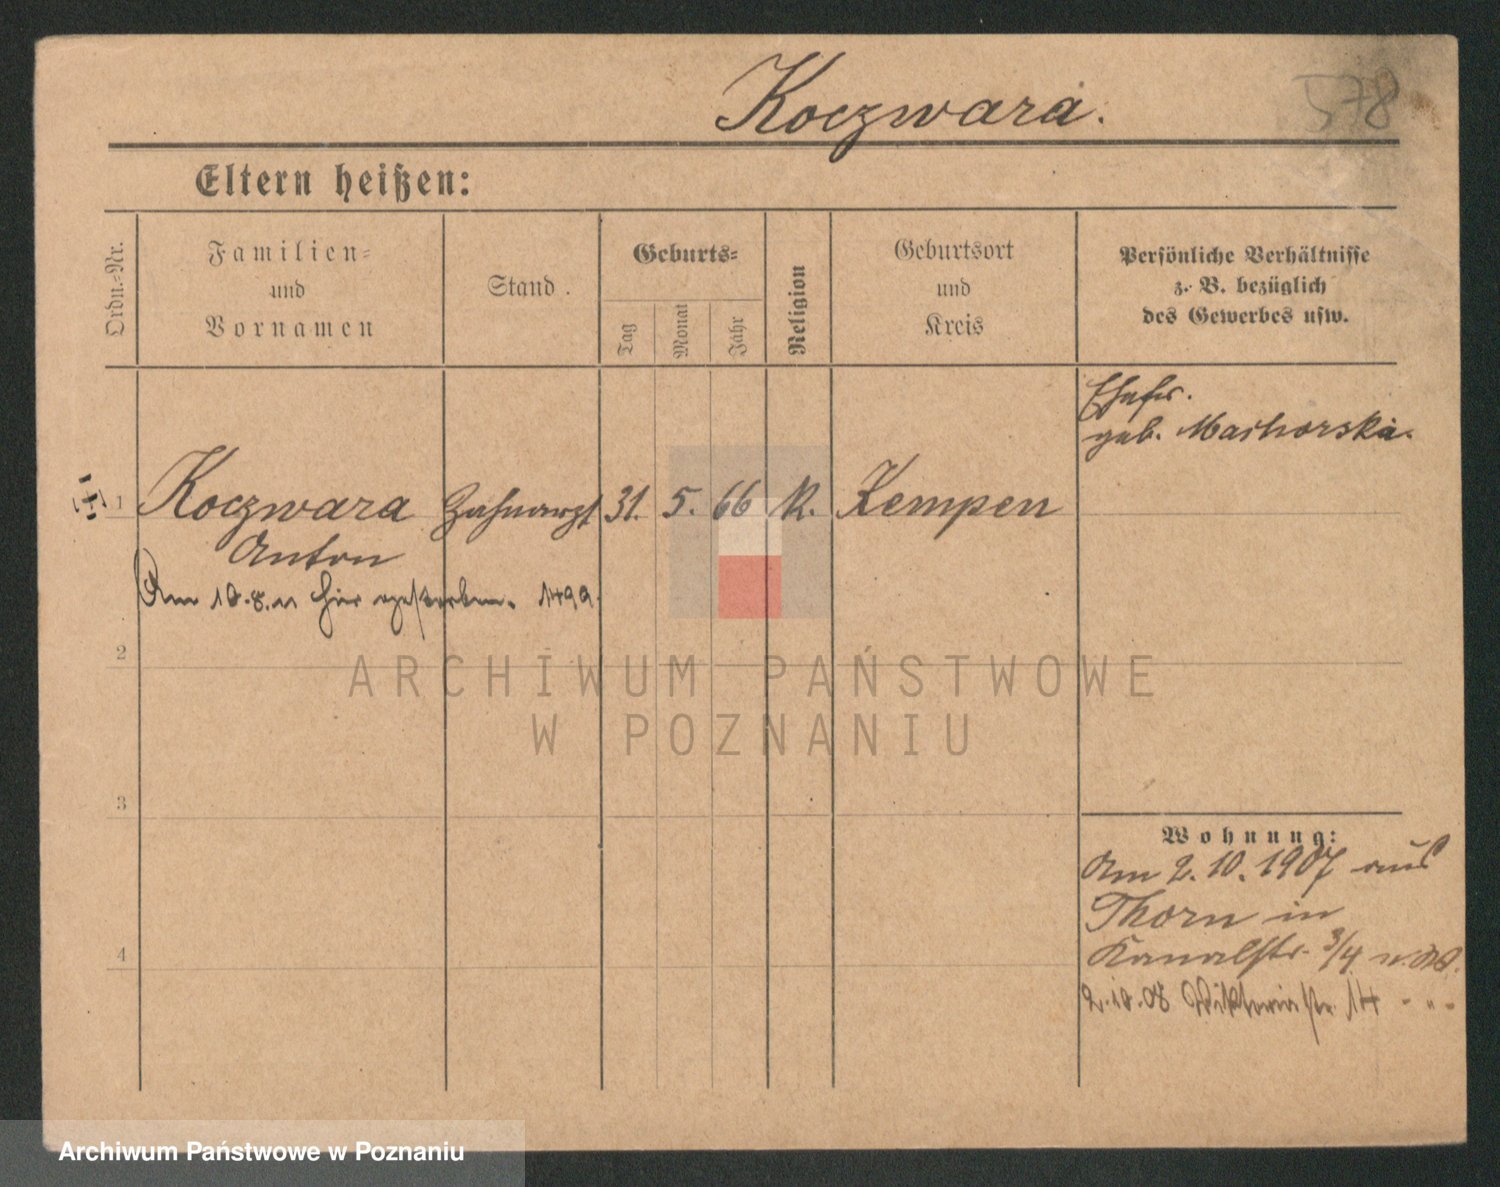 Koczwara.
578
Eltern heißen:
Ordn.-Nr.
Familien-
und
Vornamen
Stand.
Geburts-
Tag
Monat
Jahr
Religion
Geburtsort
und
Kreis
Persönliche Verhältnisse
z. B. bezüglich
des Gewerbes usw.
Ehefr.
geb.
1 Koczwara Zahnarzt 31. 5. 66 K. Kempen
Anton
Am 10.8.11 hier gestorben. 1499.
2
ARCHIWUM PAŃSTWOWE
W POZNANIU
3
Wohnung:
Am 2.10.1907 aus
Thorn in
4
Kanalstr. 3/4
2.10.08 Viktoriastr. 14 - " -
Archiwum Państwowe w Poznaniu